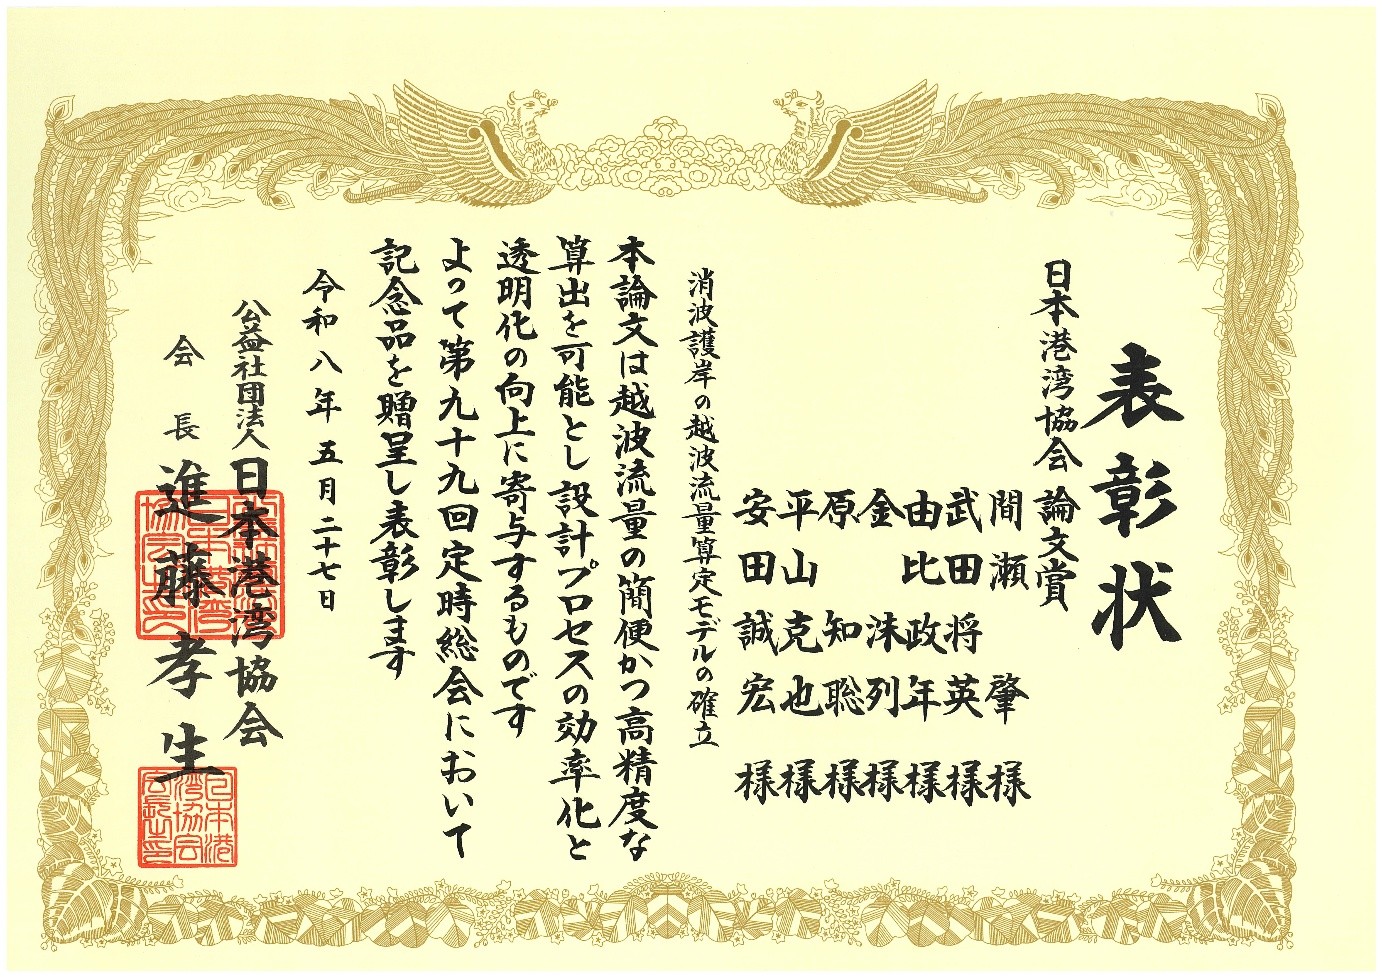 表彰状
日本港湾協会 論文賞
間瀬 肇 様
武田 将英 様
由比 政年 様
金 洙列 様
原 知聡 様
平山 克也 様
安田 誠宏 様
消波護岸の越波流量算定モデルの確立
本論文は越波流量の簡便かつ高精度な
算出を可能とし設計プロセスの効率化と
透明化の向上に寄与するものです
よって第九十九回定時総会において
記念品を贈呈し表彰します
令和八年五月二十七日
公益社団法人 日本港湾協会
会長 進藤孝生